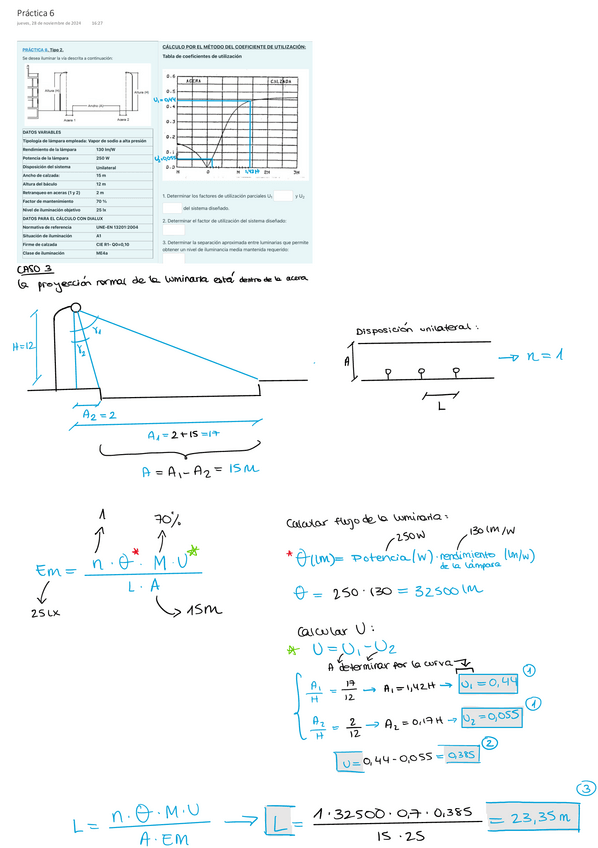 Práctica 6
jueves, 28 de noviembre de 2024 16:27
PRÁCTICA 6. Tipo 2.
Se desea iluminar la vía descrita a continuación:
Altura (H)
Altura (H)
Ancho (A)
Acera 1
Acera 2
DATOS VARIABLES
Tipología de lámpara empleada: Vapor de sodio a alta presión
Rendimiento de la lámpara 130 lm/W
Potencia de la lámpara 250 W
Disposición del sistema Unilateral
Ancho de calzada: 15 m
Altura del báculo 12 m
Retranqueo en aceras (1 y 2) 2 m
Factor de mantenimiento 70 %
Nivel de iluminación objetivo 25 lx
DATOS PARA EL CÁLCULO CON DIALUX
Normativa de referencia UNE-EN 13201:2004
Situación de iluminación A1
Firme de calzada CIE R1- Q0=0,10
Clase de iluminación ME4a
CÁLCULO POR EL MÉTODO DEL COEFICIENTE DE UTILIZACIÓN:
Tabla de coeficientes de utilización
ACERA CALZADA
0.6
0.5
U1=0,44
0.4
0.3
0.2
0.1
U2=0,055
0.0
1H 0 H 1,42H 2H 3H
1. Determinar los factores de utilización parciales U1 y U2
del sistema diseñado.
2. Determinar el factor de utilización del sistema diseñado:
3. Determinar la separación aproximada entre luminarias que permite
obtener un nivel de iluminancia media mantenida requerido:
CASO 3
la proyección normal de la luminaria está dentro de la acera
H=12
γ1
γ2
A2 = 2
A1 = 2+15 = 17
A = A1 - A2 = 15m
Disposición unilateral:
A
→ n = 1
L
1
70%
Em = n · θ* · M · U* / L · A
25 Lx
15m
Calcular flujo de la luminaria:
250W
130 lm/W
* θ(lm) = Potencia (W) · rendimiento (lm/W)
de la lámpara
θ = 250 · 130 = 32500 lm
Calcular U:
* U = U1 - U2
A determinar por la curva
A1/H = 17/12 → A1 = 1,42H → U1 = 0,44 ①
A2/H = 2/12 → A2 = 0,17H → U2 = 0,055 ①
U = 0,44 - 0,055 = 0,385 ②
L = n · θ · M · U / A · EM → L = 1 · 32500 · 0,7 · 0,385 / 15 · 25 = 23,35m ③